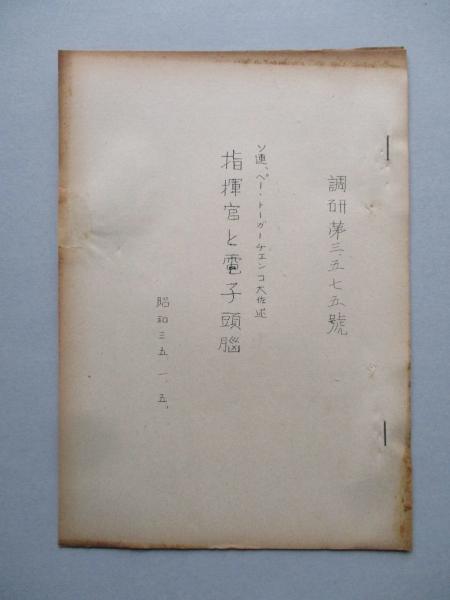 調研第三.五七五號
ソ連、ペー・トーガーチェンコ大佐述
指揮官と電子頭腦
昭和三五.一.五.